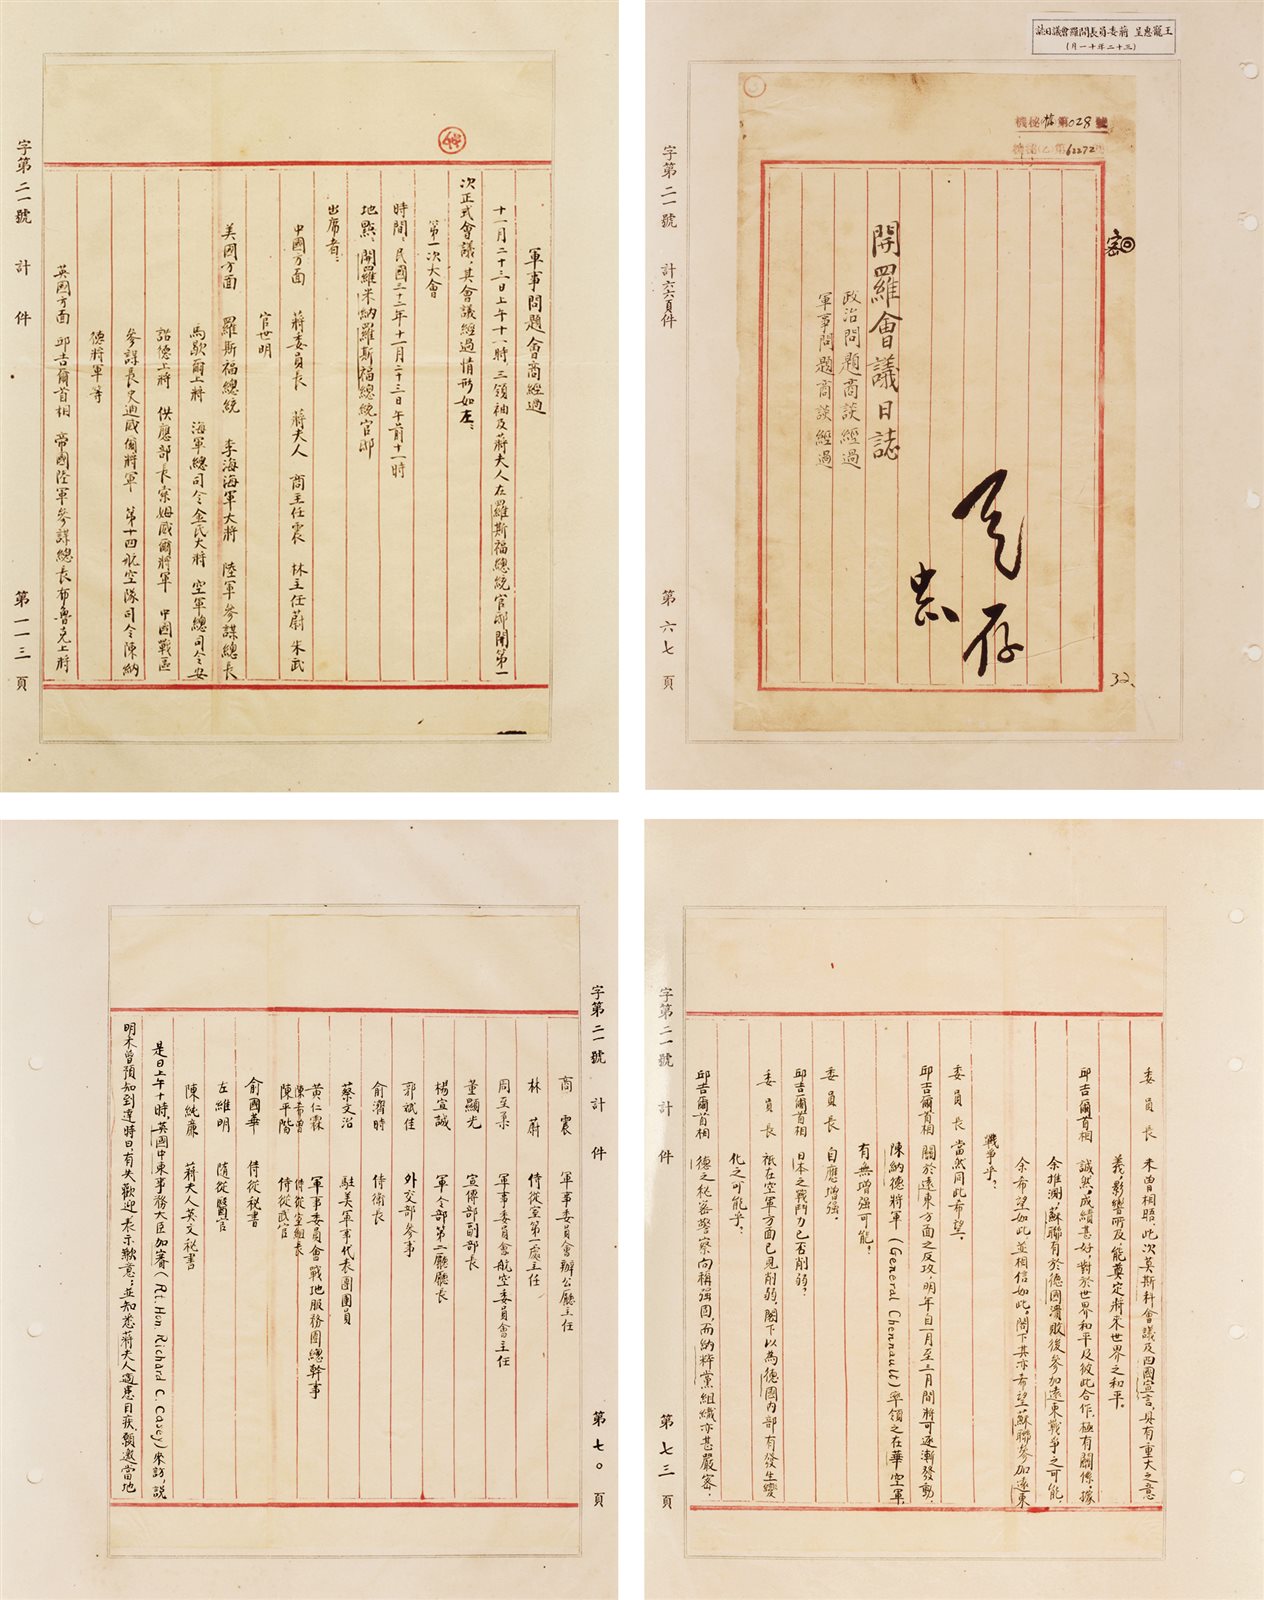 王寵惠呈 蔣委員長開羅會議日誌
(三十二年十一月)
第028號
62272
密
開羅會議日誌
政治問題商談經過
軍事問題商談經過
存
32、
字第二一號 計六六頁件 第六七頁
軍事問題會商經過
十一月二十三日上午十一時,三領袖及蔣夫人在羅斯福總統官邸開第一
次正式會議,其會議經過情形如左:
第一次大會
時間、民國三十二年十一月二十三日午前十一時
地點、開羅米納羅斯福總統官邸
出席者:
中國方面 蔣委員長 蔣夫人 商主任震 林主任蔚 朱武
官世明
美國方面 羅斯福總統 李海海軍大將 陸軍參謀總長
馬歇爾上將 海軍總司令金氏大將 空軍總司令安
諾德上將 供應部長索姆威爾將軍 中國戰區
參謀長史迪威爾將軍 第十四航空隊司令陳納
德將軍等
英國方面 邱吉爾首相 帝國陸軍參謀總長布魯克上將
字第二一號 計 件 第一一三頁
委員長 未曾相晤,此次莫斯科會議及四國宣言,具有重大之意
義,影響所及,能奠定將來世界之和平。
邱吉爾首相 誠然,成績甚好,對於世界和平及彼此合作,極有關係,據
余推測,蘇聯有於德國潰敗後參加遠東戰爭之可能,
余希望如此,並相信如此。閣下其亦希望蘇聯參加遠東
戰爭乎?
委員長 當然同此希望。
邱吉爾首相 關於遠東方面之反攻,明年自一月至三月間將可逐漸發動,
陳納德將軍(General Chennault)率領之在華空軍,
有無增強可能?
委員長 自應增強。
邱吉爾首相 日本之戰鬥力已否削弱?
委員長 祇在空軍方面已見削弱,閣下以為德國內部有發生變
化之可能乎?
邱吉爾首相 德之秘密警察向稱強固,而納粹黨組織亦甚嚴密,
字第二一號 計 件 第七三頁
商震 軍事委員會辦公廳主任
林蔚 侍從室第一處主任
周至柔 軍事委員會航空委員會主任
董顯光 宣傳部副部長
楊宣誠 軍令部第二廳廳長
郭斌佳 外交部參事
俞濟時 侍衛長
蔡文治 駐美軍事代表團團員
黃仁霖 軍事委員會戰地服務團總幹事
陳希曾 侍從室組長
陳平階 侍從武官
俞國華 侍從秘書
左維明 隨從醫官
陳純廉 蔣夫人英文秘書
是日上午十時,英國中東事務大臣加賽(Rt. Hon Richard C. Casey)來訪,說
明未曾預知到達時日,有失歡迎,表示歉意;並知悉蔣夫人適患目疾,願邀當地
字第二一號 計 件 第七〇頁